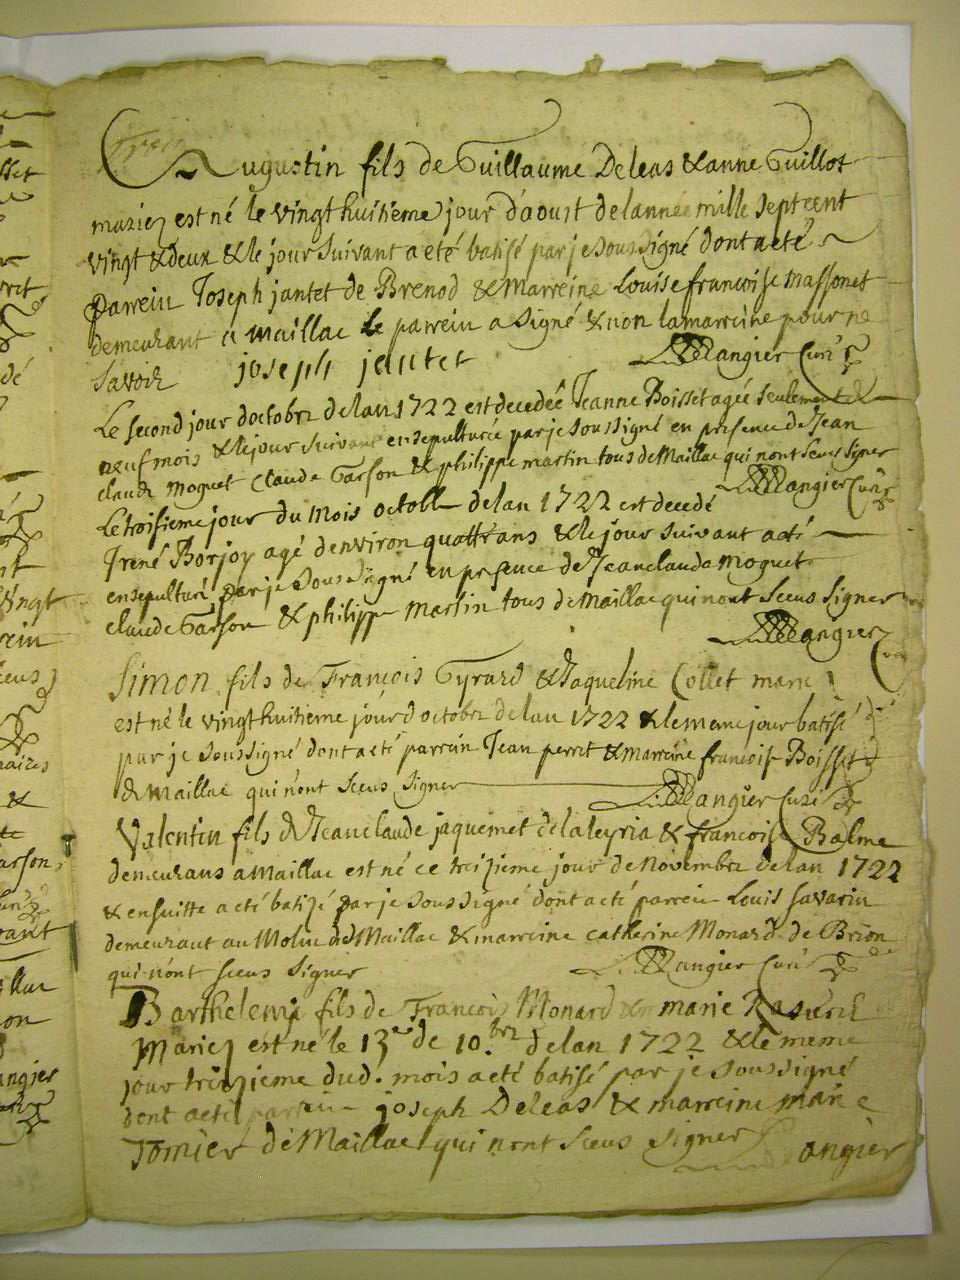 Augustin fils de Guillaume Deleas & anne Guillot
mariez est né le vingt huitieme jour d'aoust de lannee mille sept cent
vingt & deux & le jour suivant a eté batisé par je soussigné dont a eté
parrein Joseph jantet de Brenod & Marreine Louise francoise Massonet
demeurant a Maillac le parrein a signé & non la marreine pour ne
Savoir joseph jantet Mangier Curé
Le second jour doctobre de lan 1722 est decedeé Jeanne Boisset agée seulement de
neuf mois & le jour suivant ensepulturée par je soussigné en presence de Jean
claude Moguet Claude Garson & philippe martin tous de Maillac qui nont sceus signer
Mangier Curé
Le troisieme jour du Mois octobre de lan 1722 est decedé
Irené Borjoy agé denviron quattre ans & le jour suivant a eté
ensepulturé par je soussigné en presence de Jean claude Moguet
claude Garson & philippe Martin tous de Maillac qui nont sceus signer
Mangier Curé
Simon fils de François Gyrard & Jaqueline Collet marie
est né le vingt huitieme jour d octobre de lan 1722 & le meme jour batisé
par je soussigné dont a eté parrein Jean perret & marreine francoise Boisset
de Maillac qui nont sceus signer Mangier Curé
Valentin fils de Jean claude jaquemet de laleyria & francoise Balme
demeurans a Maillac est né ce treizieme jour de Novembre de lan 1722
& ensuitte a eté batizé par je soussigné dont a eté parrein Louis Savarin
demeurant au Molin de Maillac & marreine catherine Monard de Brion
qui nont sceus signer Mangier Curé
Barthelemi fils de Francois Monard & marie
Mariez est né le 13me de 10.bre de lan 1722 & le meme
jour treizieme dud. mois a eté batisé par je soussigné
dont a eté parrein joseph Deleas & marreine marie
Tornier de Maillac qui nont sceus signer Mangier